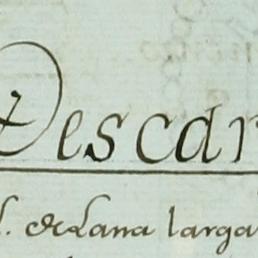 Descar
d. de Lana larga